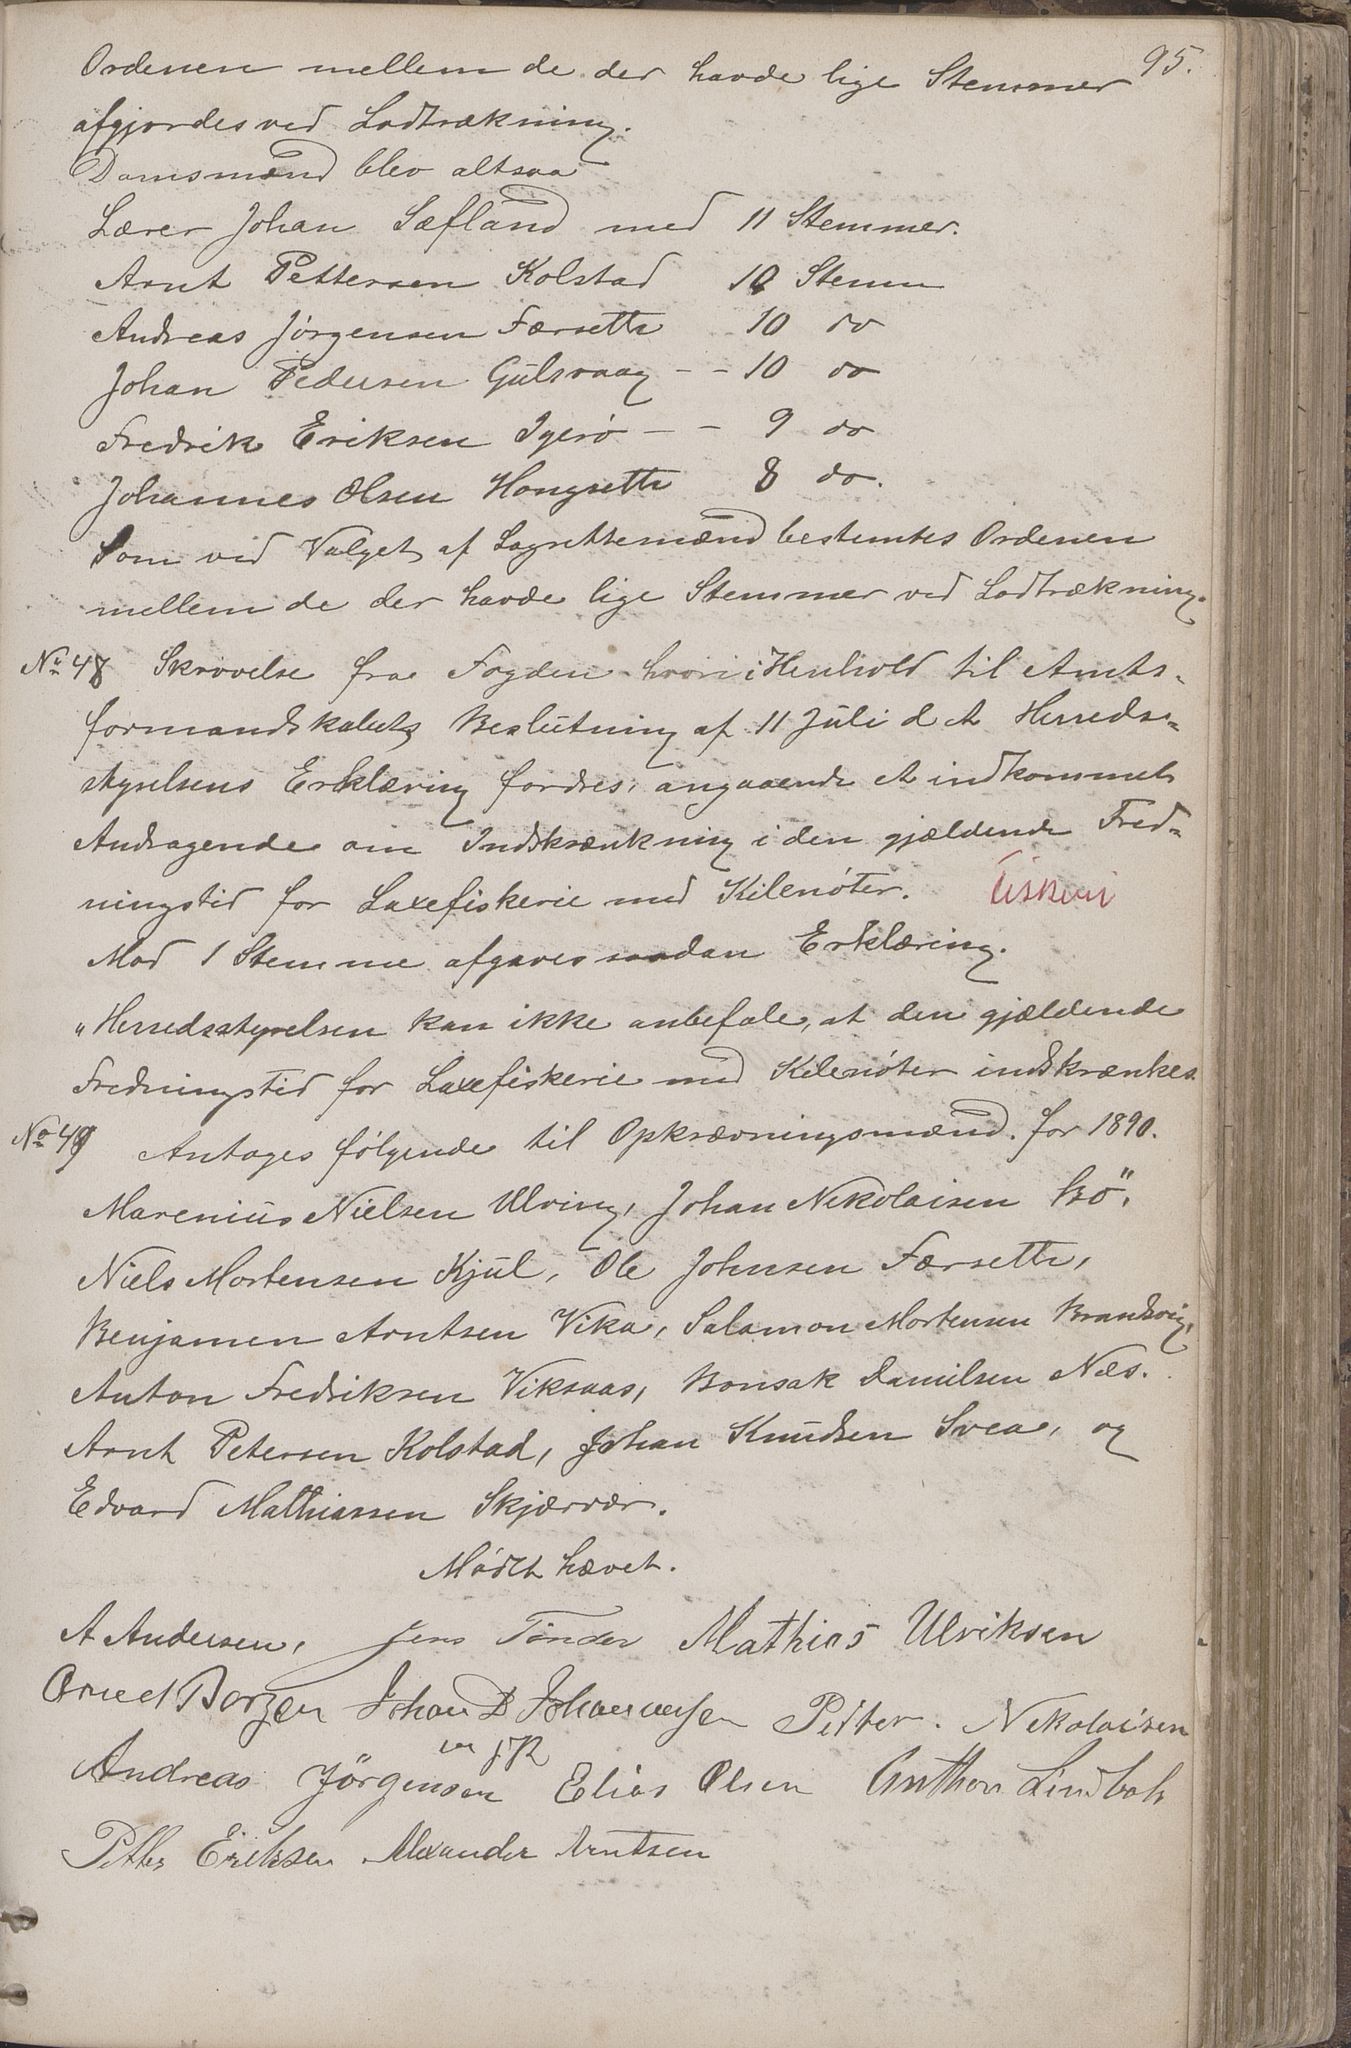 95.
Ordenen mellem de der havde lige Stemmer
afgjordes ved Lodtrækning.
Domsmænd blev altsaa
Lærer Johan Sæfland med 11 Stemmer.
Arnt Pettersen Kolstad 10 Stemm
Andreas Jørgensen Færsette 10 do
Johan Pedersen Gulsvaag - - 10 do
Fredrik Eriksen Igerø - - 9 do
Johannes Olsen Hongsette 8 do.
Som ved Valget af Lagrettemænd bestemtes Ordenen
mellem de der havde lige Stemmer ved Lodtrækning.
No 48 Skrivelse fra Fogden hvori i Henhold til Amts-
formandskabets Beslutning af 11 Juli d. A Herreds-
styrelsens Erklæring fordres, angaaende et indkommet
Andragende om Indskrænkning i den gjældende Fred-
ningstid for Laxefiskerie med Kilenøter. Fiskeri
Mod 1 Stemme afgaves saadan Erklæring.
"Herredsstyrelsen kan ikke anbefale, at den gjældende
Fredningstid for Laxefiskerie med Kilenøter indskrænkes
No 49 Antages følgende til Opkrævningsmænd for 1890.
Marenius Nielsen Ulving, Johan Nikolaisen Bø".
Niels Mortensen Kjul, Ole Johnsen Færsette,
Benjamen Arntsen Vika, Salamon Mortensen Brandsvig,
Anton Fredriksen Viksaas, Bonsak Danielsen Næs.
Arnt Petersen Kolstad, Johan Knudsen Svea, og
Edvard Mathiassen Skjærvær.
Mødet hævet.
A Andersen, Jens Tønder Mathias Ulriksen
Borgen Johan D Johannesen Petter. Nikolaisen
Andreas Jörgensen Elias Olsen Anthon Lindbak
Petter Eriksen Alexander Arntsen